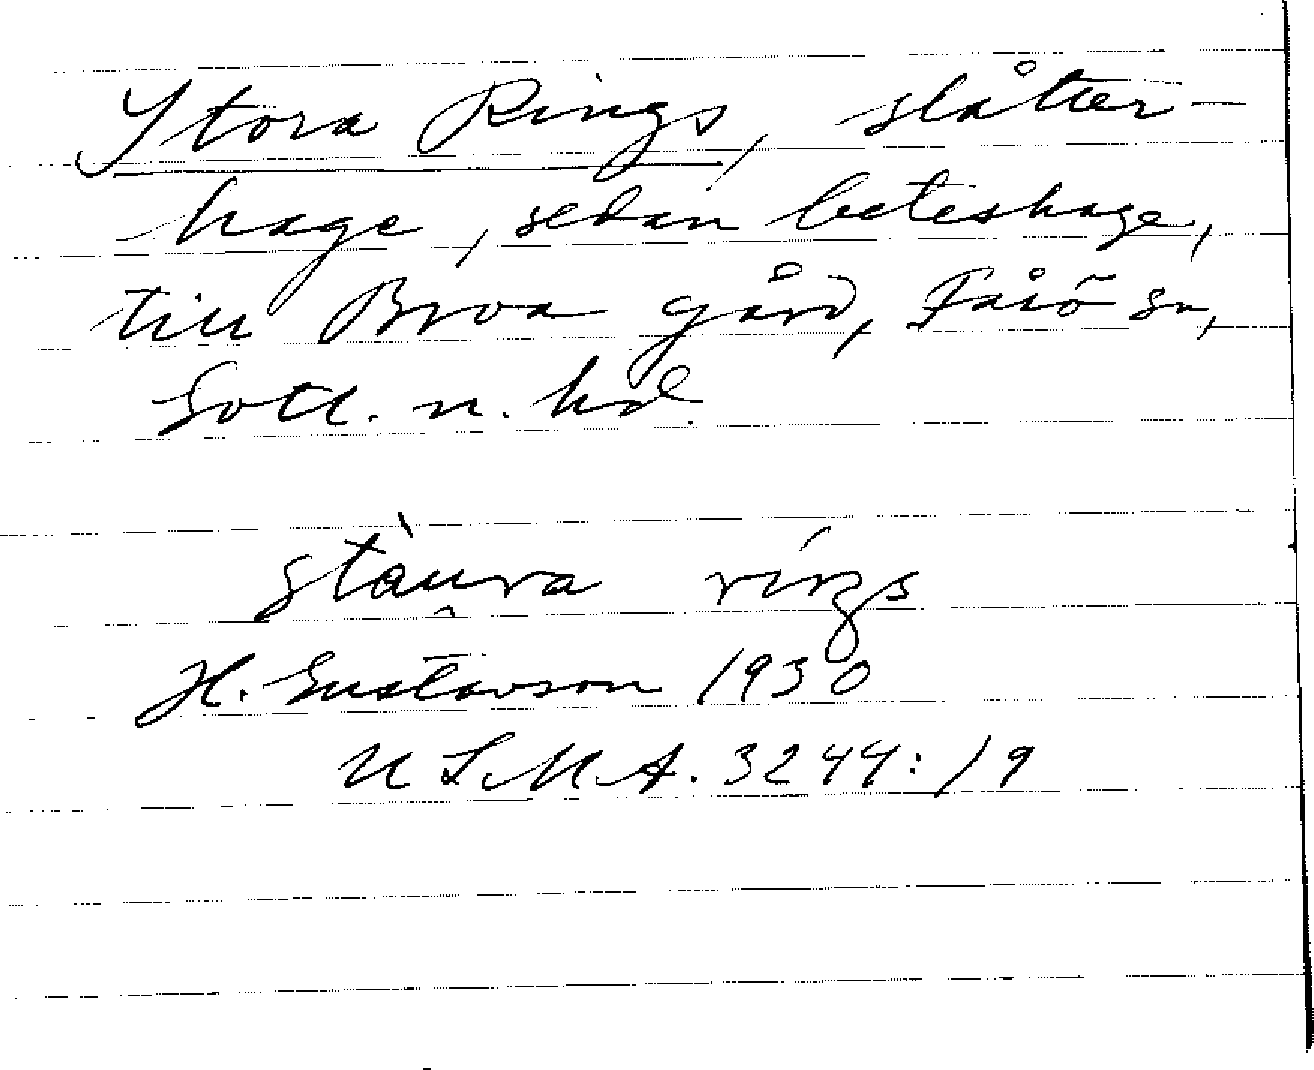 Stora Rings, slåtter-
hage, sedan beteshage,
till Broa gård, Fårö sn,
Gotl. n. hd.
stàu̯ra ríŋgs
H. Gustavson 1930
ULMA. 3244:19